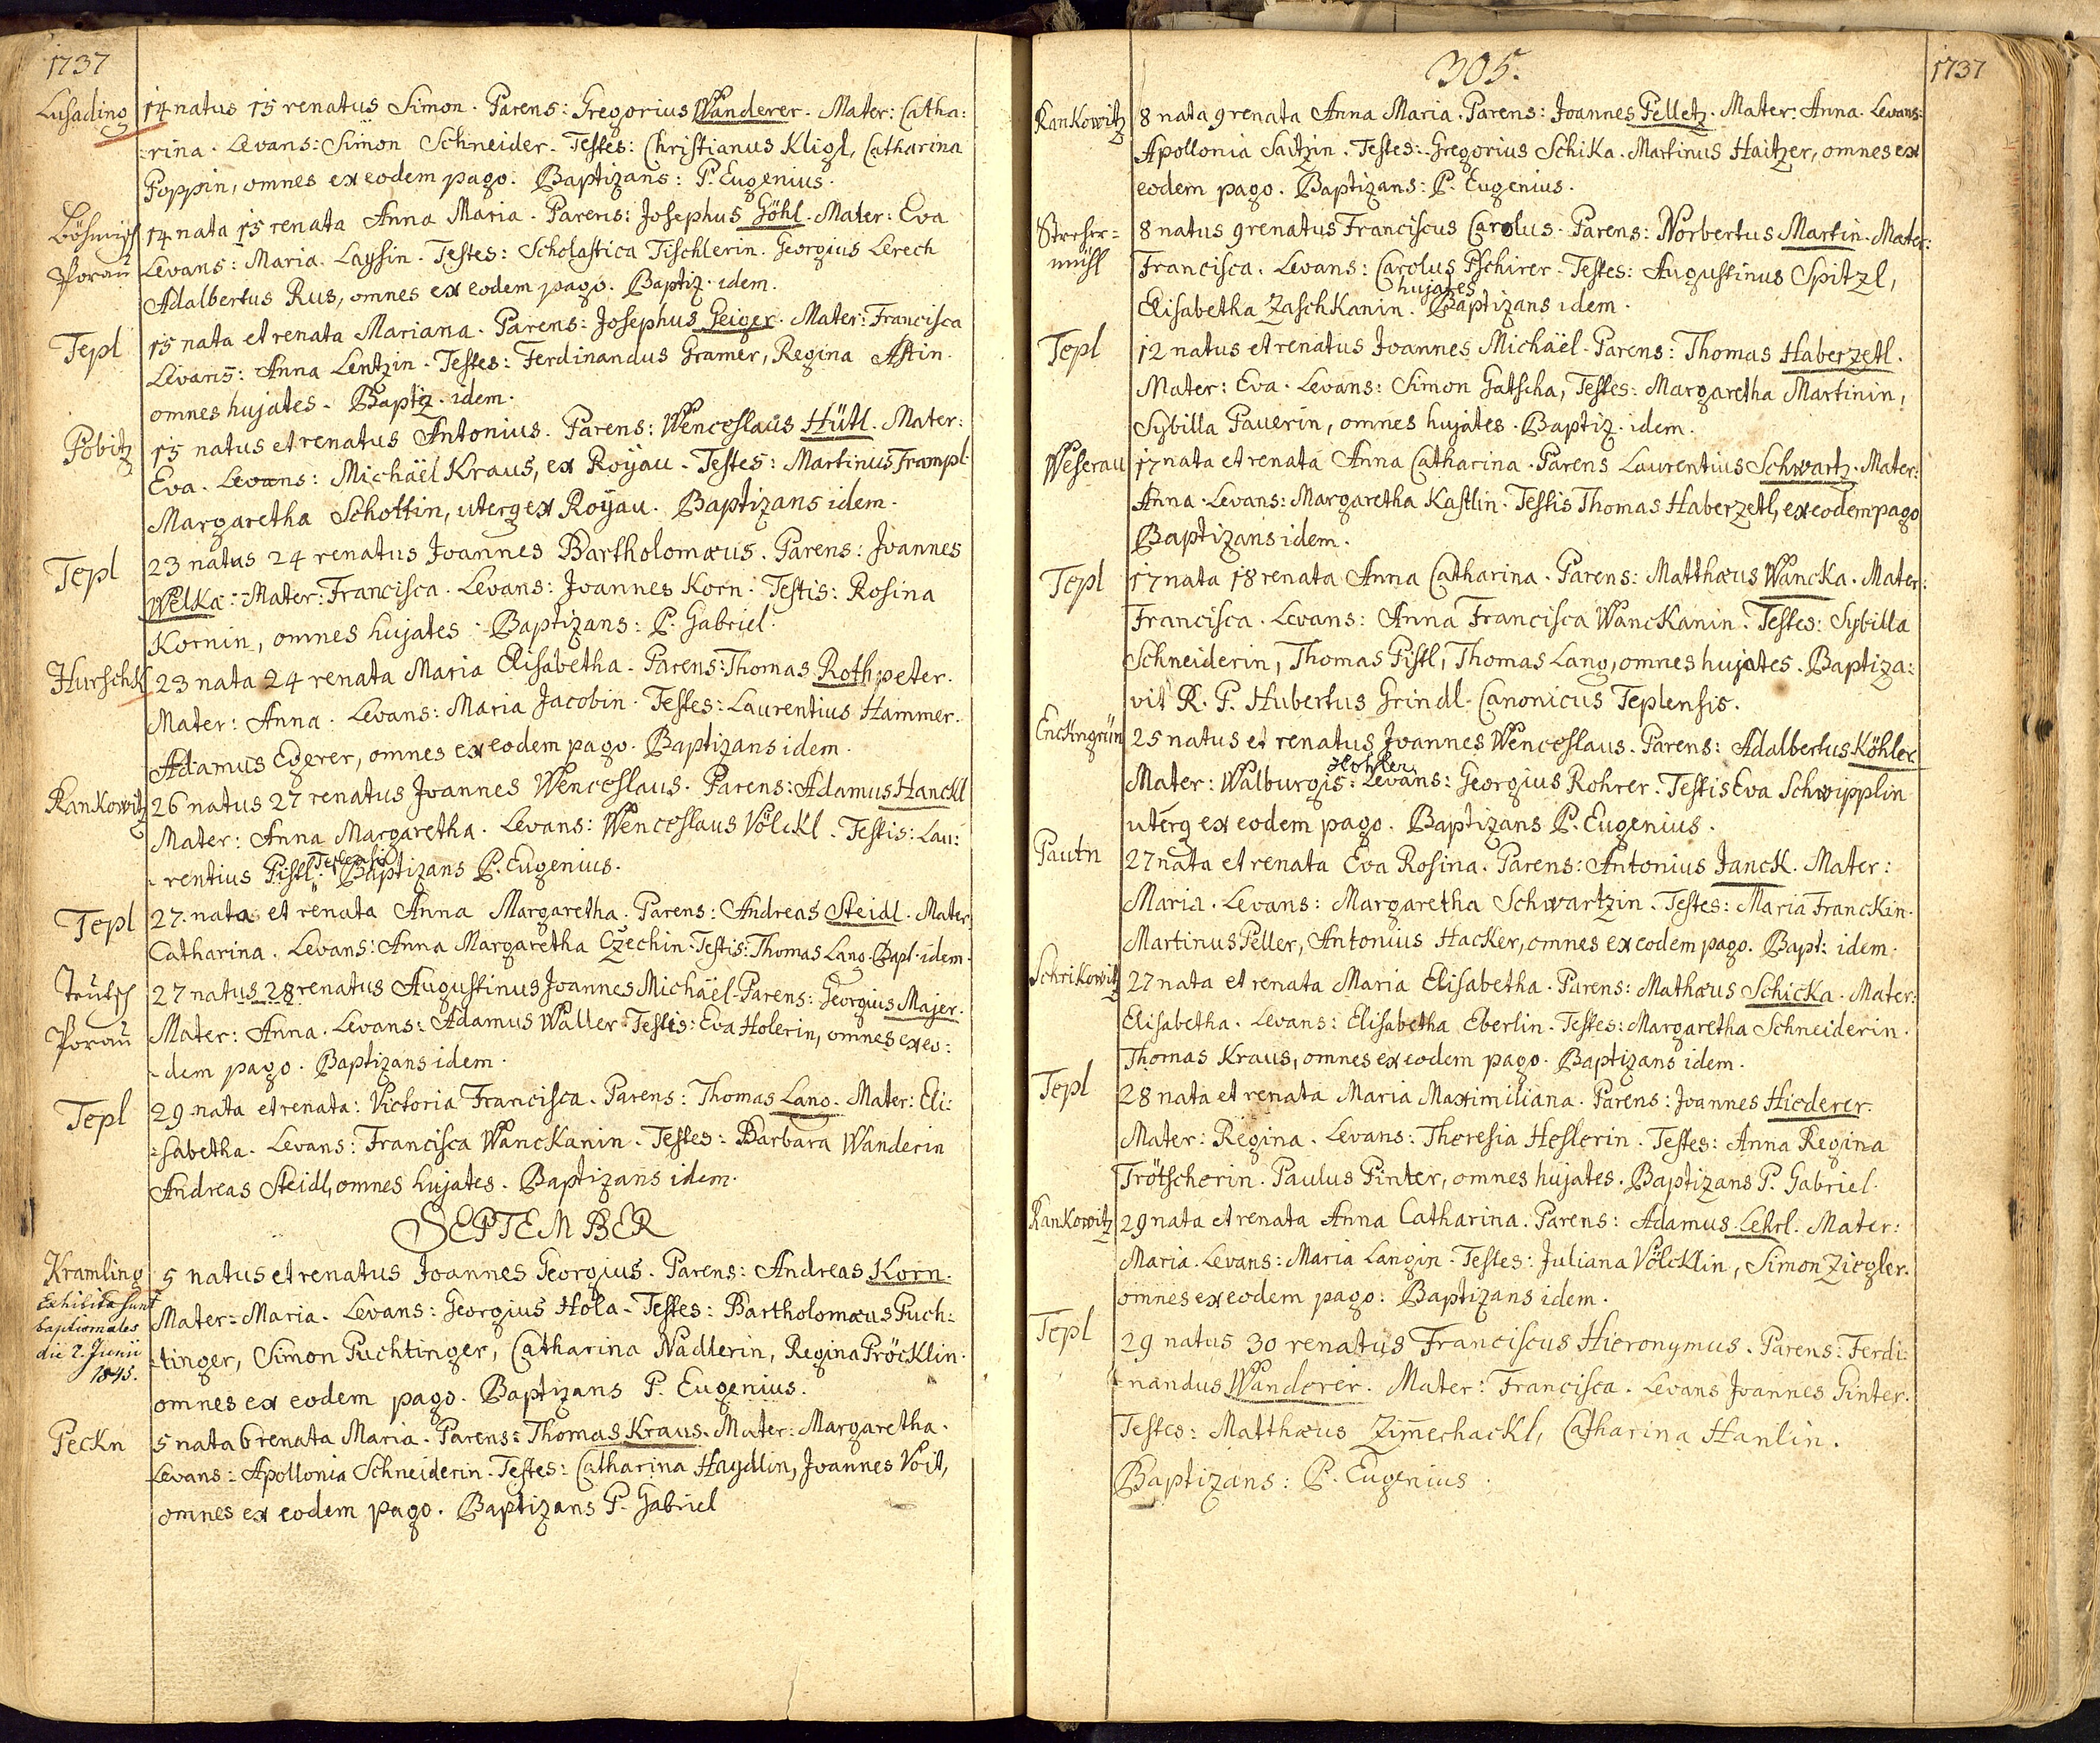 1737
Lusading 14 natus 15 renatus Simon. Parens: Gregorius Wanderer. Mater: Catha:
:rina. Levans: Simon Schneider. Testes: Christianus Kligl, Catharina
Poppin, omnes ex eodem pago. Baptizans: P. Eugenius.
Böhmisch 14 nata 15 renata Anna Maria. Parens: Josephus Göhl. Mater: Eva
Porau Levans: Maria Laysin. Testes: Scholastica Tischlerin. Georgius Lerech
Adalbertus Rus, omnes ex eodem pago. Baptiz. idem.
Tepl 15 nata et renata Mariana. Parens: Josephus Geiger. Mater: Francisca
Levans: Anna Lentzin. Testes: Ferdinandus Gramer, Regina Astin.
omnes hujates. Baptiz. idem.
Pobitz 15 natus et renatus Antonius. Parens: Wenceslaus Hütl. Mater:
Eva. Levans: Michaël Kraus, ex Royau. Testes: Martinus Frampl.
Margaretha Schottin, uterq ex Royau. Baptizans idem.
Tepl 23 natus 24 renatus Joannes Bartholomæus. Parens: Joannes
Welka. Mater: Francisca. Levans: Joannes Korn. Testis: Rosina
Kornin, omnes hujates. Baptizans: P. Gabriel.
Hurschk 23 nata 24 renata Maria Elisabetha. Parens: Thomas Rothpeter.
Mater: Anna. Levans: Maria Jacobin. Testes: Laurentius Hammer.
Adamus Egerer, omnes ex eodem pago. Baptizans idem.
Rankowitz 26 natus 27 renatus Joannes Wenceslaus. Parens: Adamus Hanckl
Mater: Anna Margaretha. Levans: Wenceslaus Völckl. Testis: Lau:
rentius Pistl. Teplensis Baptizans P. Eugenius.
Tepl 27 nata et renata Anna Margaretha. Parens: Andreas Steidl. Mater
Catharina. Levans: Anna Margaretha Czechin. Testis: Thomas Lang. Bapt. idem.
Teutsch 27 natus 28 renatus Augustinus Joannes Michaël. Parens: Georgius Majer.
Porau Mater: Anna. Levans: Adamus Waller. Testis: Eva Holerin, omnes ex eo:
dem pago. Baptizans idem.
Tepl 29 nata et renata: Victoria Francisca. Parens: Thomas Lang. Mater: Eli:
:sabetha. Levans: Francisca Wanckanin. Testes: Barbara Wanderin
Andreas Steidl, omnes hujates. Baptizans idem.
SEPTEMBER
Kramling 5 natus et renatus Joannes Georgius. Parens: Andreas Korn.
Exhibita sunt
baptismales
die 2. Junii
1845.
Mater: Maria. Levans: Georgius Hola. Testes: Bartholomæus Puch:
:tinger, Simon Puchtinger, Catharina Nadlerin, Regina Pröcklin.
omnes ex eodem pago. Baptizans P. Eugenius.
Peckn 5 nata 6 renata Maria. Parens: Thomas Kraus. Mater: Margaretha.
Levans: Apollonia Schneiderin. Testes: Catharina Haydlin, Joannes Voit,
omnes ex eodem pago. Baptizans P. Gabriel
305.
1737
Rankowitz 8 nata 9 renata Anna Maria. Parens: Joannes Pelletz. Mater: Anna. Levans:
Apollonia Saitzin. Testes: Gregorius Schika. Martinus Haitzer, omnes ex
eodem pago. Baptizans: P. Eugenius.
8 natus 9 renatus Franciscus Carolus. Parens: Norbertus Martin. Mater:
mühl Francisca. Levans: Carolus Pschirer. Testes: Augustinus Spitzl,
Elisabetha Zaschkanin. hujates Baptizans idem.
Tepl 12 natus et renatus Joannes Michaël. Parens: Thomas Haberzetl.
Mater: Eva. Levans: Simon Gatscha, Testes: Margaretha Martinin,
Sybilla Pauerin, omnes hujates. Baptiz. idem.
Weserau 17 nata et renata Anna Catharina. Parens Laurentius Schwartz. Mater:
Anna. Levans: Margaretha Kastlin. Testis Thomas Haberzetl, ex eodem pago
Baptizans idem.
Tepl 17 nata 18 renata Anna Catharina. Parens: Matthæus Wancka. Mater:
Francisca. Levans: Anna Francisca Wanckanin. Testes: Sybilla
Schneiderin, Thomas Pistl, Thomas Lang, omnes hujates. Baptiza:
vit R. P. Hubertus Grindl. Canonicus Teplensis.
Enckngrün 25 natus et renatus Joannes Wenceslaus. Parens: Adalbertus Köhler
Mater: Walburgis: Levans: Georgius Rohrer. Testis Eva Schwipplin
uterq ex eodem pago. Baptizans P. Eugenius.
Pautn 27 nata et renata Eva Rosina. Parens: Antonius Janck. Mater:
Maria. Levans: Margaretha Schwartzin. Testes: Maria Franckin.
Martinus Peller, Antonius Hacker, omnes ex eodem pago. Bapt: idem.
Schrikowitz 27 nata et renata Maria Elisabetha. Parens: Mathæus Schicka. Mater:
Elisabetha. Levans: Elisabetha Eberlin. Testes: Margaretha Schneiderin.
Thomas Kraus, omnes ex eodem pago. Baptizans idem.
Tepl 28 nata et renata Maria Maximiliana. Parens: Joannes Hiederer.
Mater: Regina. Levans: Theresia Heslerin. Testes: Anna Regina
Trötscherin. Paulus Pinter, omnes hujates. Baptizans P. Gabriel.
Rankowitz 29 nata et renata Anna Catharina. Parens: Adamus Lehrl. Mater:
Maria. Levans: Maria Langin. Testes: Juliana Völcklin, Simon Ziegler.
omnes ex eodem pago: Baptizans idem.
Tepl 29 natus 30 renatus Franciscus Hieronymus. Parens: Ferdi:
nandus Wanderer. Mater: Francisca. Levans Joannes Pinter.
Testes: Matthæus Zim̄erhackl, Catharina Hanlin.
Baptizans: P. Eugenius.